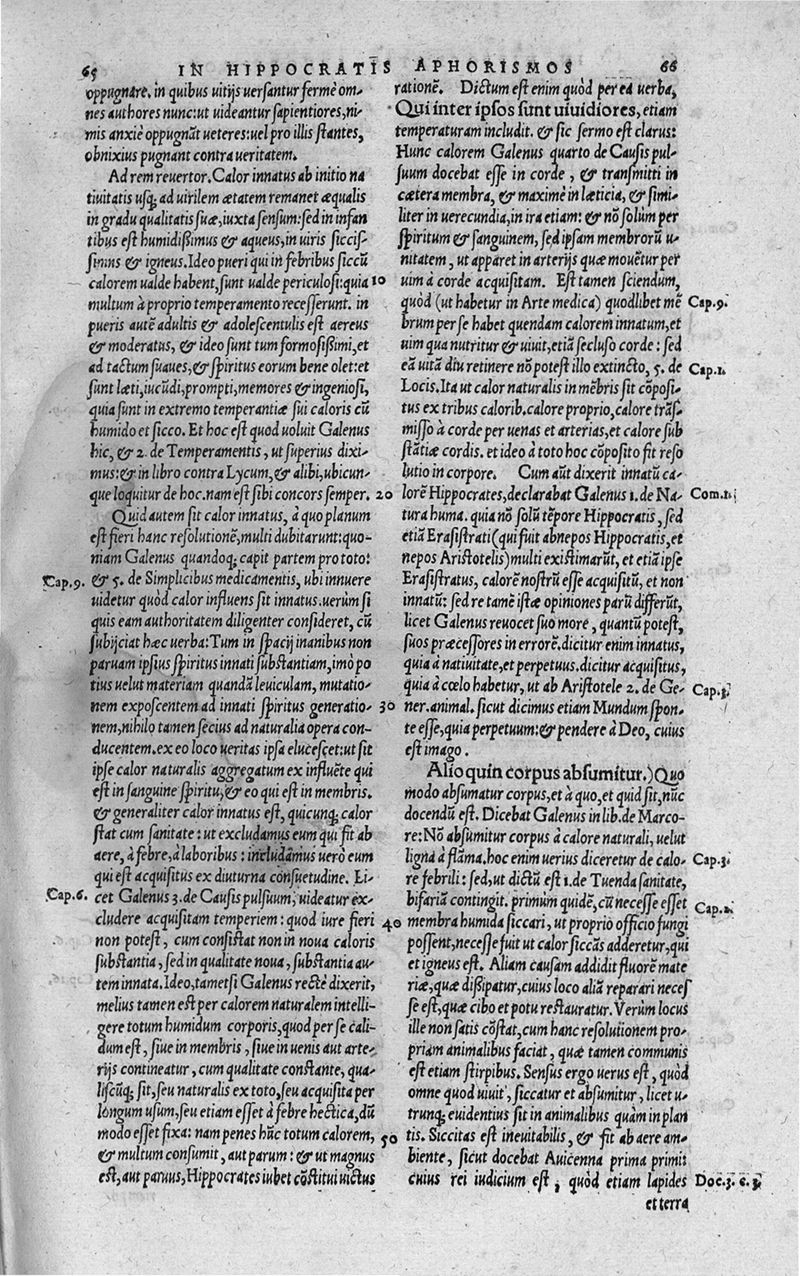 65 IN HIPPOCRATIS APHORISMOS 66
oppugnare. in quibus uitijs uersantur fermè om-
nes authores nunc: ut uideantur sapientiores, ni-
mis anxiè oppugnāt ueteres: uel pro illis stantes,
obnixius pugnant contra ueritatem.
Ad rem reuertor. Calor innatus ab initio na
tiuitatis usq; ad uirilem ætatem remanet æqualis
in gradu qualitatis suæ, iuxta sensum: sed in infan
tibus est humidißimus & aqueus, in uiris siccis-
simus & igneus. Ideo pueri qui in febribus siccū
calorem ualde habent, sunt ualde periculosi: quia 10
multum à proprio temperamento recesserunt. in
pueris autē adultis & adolescentulis est aereus
& moderatus, & ideo sunt tum formosißimi, et
ad tactum suaues, & spiritus eorum bene olet: et
sunt læti, iucūdi, prompti, memores & ingeniosi,
quia sunt in extremo temperantiæ sui caloris cū
humido et sicco. Et hoc est quod uoluit Galenus
hic, & 2. de Temperamentis, ut superius dixi-
mus: & in libro contra Lycum, & alibi, ubicun-
que loquitur de hoc. nam est sibi concors semper. 20
Quid autem sit calor innatus, à quo planum
est fieri hanc resolutionē, multi dubitarunt: quo-
niam Galenus quandoq; capit partem pro toto:
Cap. 9. & 5. de Simplicibus medicamentis, ubi innuere
uidetur quòd calor influens sit innatus. uerùm si
quis eam authoritatem diligenter consideret, cū
subijciat hæc uerba: Tum in spacij inanibus non
paruam ipsius spiritus innati substantiam, imò po
tius uelut materiam quandā leuiculam, mutatio-
nem exposcentem ad innati spiritus generatio- 30
nem, nihilo tamen secius ad naturalia opera con-
ducentem. ex eo loco ueritas ipsa elucescet: ut sit
ipse calor naturalis aggregatum ex influēte qui
est in sanguine spiritu, & eo qui est in membris.
& generaliter calor innatus est, quicunq; calor
stat cum sanitate: ut excludamus eum qui fit ab
aere, à febre, à laboribus: includamus uerò eum
qui est acquisitus ex diuturna consuetudine. Li-
Cap. 6. cet Galenus 3. de Causis pulsuum, uideatur ex-
cludere acquisitam temperiem: quod iure fieri 40
non potest, cum consistat non in noua caloris
substantia, sed in qualitate noua, substantia au-
tem innata. Ideo, tametsi Galenus rectè dixerit,
melius tamen est per calorem naturalem intelli-
gere totum humidum corporis, quod per se cali-
dum est, siue in membris, siue in uenis aut arte-
rijs contineatur, cum qualitate constante, qua-
liscūq; sit, seu naturalis ex toto, seu acquisita per
longum usum, seu etiam esset à febre hectica, dū
modo esset fixa: nam penes hūc totum calorem, 50
& multum consumit, aut parum: & ut magnus
est, aut paruus, Hippocrates iubet cōstitui uictus
rationē. Dictum est enim quòd per ea uerba,
Qui inter ipsos sunt uiuidiores, etiam
temperaturam includit. & sic sermo est clarus:
Hunc calorem Galenus quarto de Causis pul-
suum docebat esse in corde, & transmitti in
cætera membra, & maximè in læticia, & simi-
liter in uerecundia, in ira etiam: & nō solùm per
spiritum & sanguinem, sed ipsam membrorū u-
nitatem, ut apparet in arterijs quæ mouētur per
uim à corde acquisitam. Est tamen sciendum,
quòd (ut habetur in Arte medica) quodlibet mē Cap. 9.
brum per se habet quendam calorem innatum, et
uim qua nutritur & uiuit, etiā secluso corde: sed
eā uitā diu retinere nō potest illo extincto, 5. de Cap. 1.
Locis. Ita ut calor naturalis in mēbris sit cōposi-
tus ex tribus calorib. calore proprio, calore trās-
misso à corde per uenas et arterias, et calore sub
stātiæ cordis. et ideo à toto hoc cōposito fit reso
lutio in corpore. Cum aūt dixerit innatū ca-
lorē Hippocrates, declarabat Galenus 1. de Na- Com. 1.
tura huma. quia nō solū tēpore Hippocratis, sed
etiā Erasistrati (qui fuit abnepos Hippocratis, et
nepos Aristotelis) multi existimarūt, et etiā ipse
Erasistratus, calorē nostrū esse acquisitū, et non
innatū: sed re tamē istæ opiniones parū differūt,
licet Galenus reuocet suo more, quantū potest,
suos præcessores in errorē. dicitur enim innatus,
quia à natiuitate, et perpetuus. dicitur acquisitus,
quia à cœlo habetur, ut ab Aristotele 2. de Ge- Cap. 3.
ner. animal. sicut dicimus etiam Mundum spon-
te esse, quia perpetuum: & pendere à Deo, cuius
est imago.
Alioquin corpus absumitur.) Quo
modo absumatur corpus, et à quo, et quid sit, nūc
docendū est. Dicebat Galenus in lib. de Marco-
re: Nō absumitur corpus à calore naturali, uelut
ligna à flāma. hoc enim uerius diceretur de calo- Cap. 3.
re febrili: sed, ut dictū est 1. de Tuenda sanitate,
bifariā contingit. primùm quidē, cū necesse esset Cap. 2.
membra humida siccari, ut proprio officio fungi
possent, necesse fuit ut calor siccās adderetur, qui
et igneus est. Aliam causam addidit fluorē mate
riæ, quæ dißipatur, cuius loco aliā reparari neces
se est, quæ cibo et potu restauratur. Verùm locus
ille non satis cōstat, cum hanc resolutionem pro-
priam animalibus faciat, quæ tamen communis
est etiam stirpibus. Sensus ergo uerus est, quòd
omne quod uiuit, siccatur et absumitur, licet u-
trunq; euidentius sit in animalibus quàm in plan
tis. Siccitas est ineuitabilis, & fit ab aere am-
biente, sicut docebat Auicenna prima primi:
cuius rei iudicium est, quòd etiam lapides Doc. 3. c. 3.
et terra